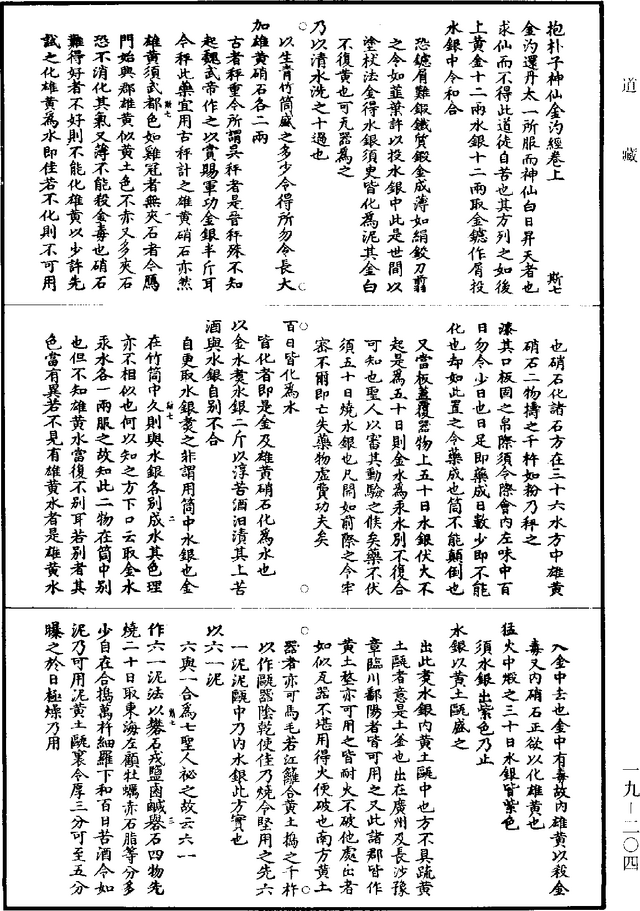 道藏
抱朴子神仙金汋經卷上
斯七
金汋還丹太一所服而神仙白日昇天者也
求仙而不得此道徒自苦也其方列之如後
上黃金十二兩水銀十二兩取金鑢作屑投
水銀中令和合
恐鑢屑難鍜鐵質鍜金成薄如絹鉸刀翦
之令如韮葉許以投水銀中此是世間以
塗杖法金得水銀須臾皆化為泥其金白
不復黃也可瓦器為之
乃以清水洗之十過也
以生青竹筒盛之多少令得所勿令長大
加雄黃硝石各二兩
古者秤重今所謂吳秤者是晉秤殊不知
起魏武帝作之以賞賜軍功金銀半斤耳
今秤此藥宜用古秤計之雄黃硝石亦然
雄黃須武都色如雞冠者無夾石者令鴈
門始興郡雄黃似黃土色不赤又多夾石
恐不消化其氣又薄不能殺金毒也硝石
難得好者不好則不能化雄黃以少許先
試之化雄黃為水即佳若不化則不可用
也硝石化諸石方在三十六水方中雄黃
硝石二物擣之千杵如粉乃秤之
漆其口板固之帛際須令際會內左味中百
日勿令少日也日足即藥成日數少即不能
化也却如此置之令藥成也筒不能顛倒也
又當板蓋覆器物上五十日水銀伏火不
起是為五十日則金水為汞水別不復合
可知也聖人以審其動驗之候矣藥不伏
須五十日燒水銀也尺間如前際之令牢
密不爾即亡失藥物虛費功夫矣
百日皆化為水
皆化者即是金及雄黃硝石化為水也
以金水煑水銀二斤以淳苦酒汩漬其上苦
酒與水銀自別不合
自更取水銀煑之非謂用筒中水銀也金
在竹筒中久則與水銀各別成水其色理
亦不相似也何以知之方下口云取金水
汞水各一兩服之故知此二物在筒中別
也但不知雄黃水當復不別耳若別者其
色當有異若不見有雄黃水者是雄黃水
入金中去也金中有毒故內雄黃以殺金
毒又內硝石正欲以化雄黃也
猛火中煅之三十日水銀皆紫色
須水銀出紫色乃止
水銀以黃土甌盛之
出此煑水銀內黃土甌中也方不具疏黃
土甌者意是土釜也出在廣州及長沙豫
章臨川鄱陽者皆可用之又此諸郡皆作
黃土堥亦可用之皆耐火不破他處出者
如似瓦器不堪用得火便破也南方黃土
器者亦可馬毛若江籬合黃土擣之千杵
以作甌器陰乾使佳乃燒令堅用之先六
一泥泥甌中乃內水銀此方實也
以六一泥
六與一合為七聖人祕之故云六一
作六一泥法以礬石戎鹽鹵鹹礜石四物先
燒二十日取東海左顧牡蠣赤石脂等分多
少自在合擣萬杵細羅下和百日苦酒令如
泥乃可用泥黃土甌裏令厚三分可至五分
曝之於日極燥乃用
一九—二〇四